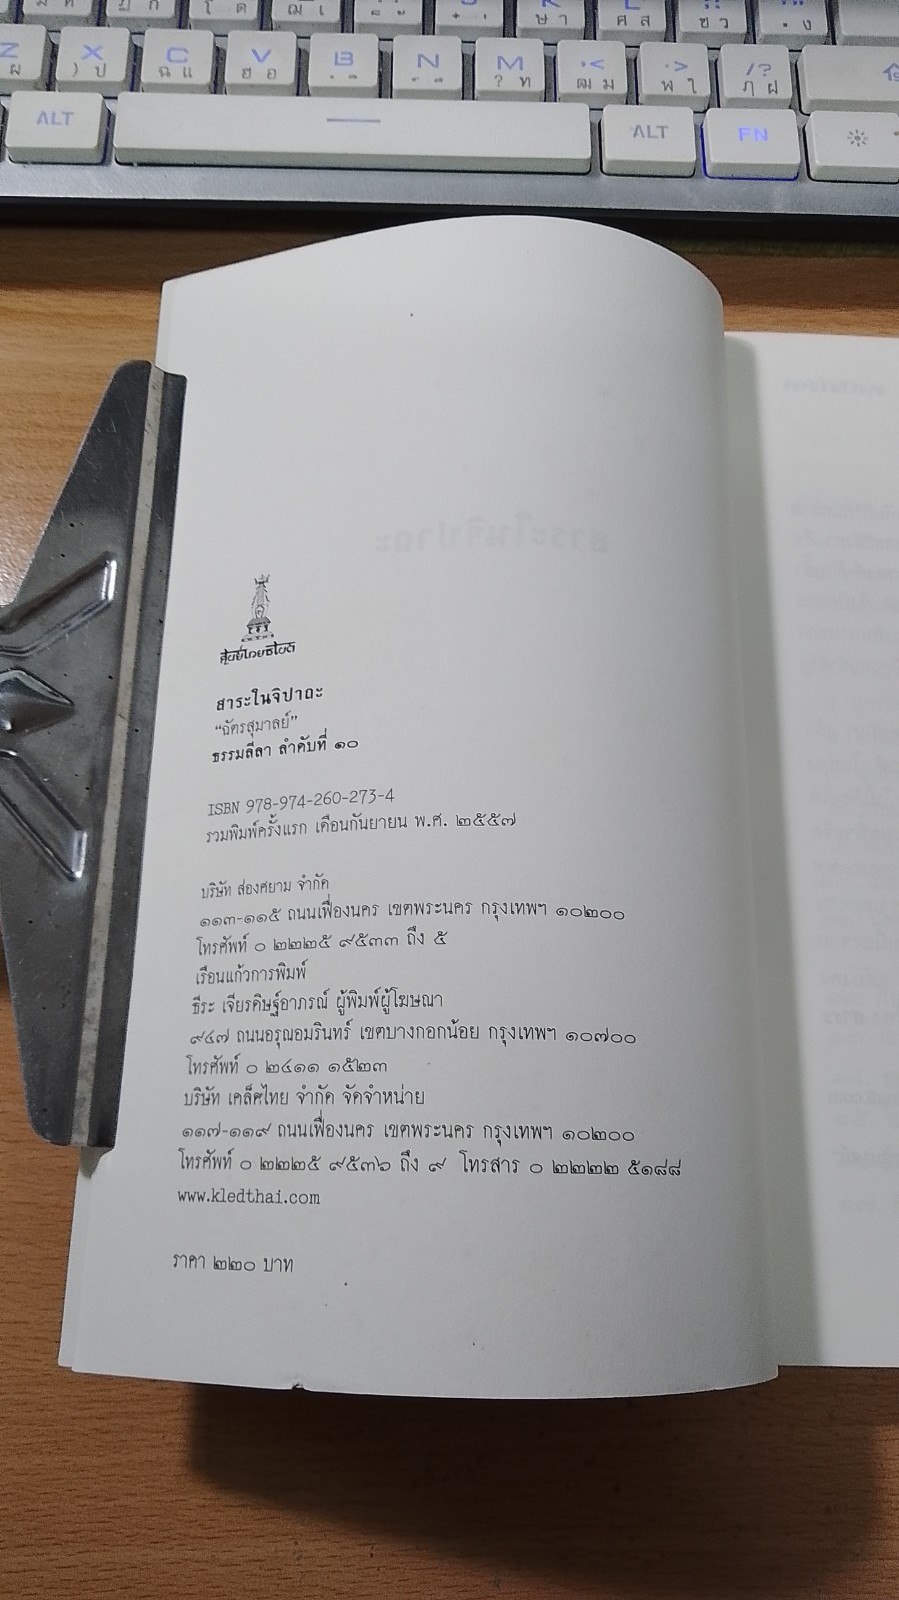 Z ผ
X ) ป
C ฉ แ
V ฮ อ
B
N
M ? ท
< ฒ ม
> พ ใ
/? ฦ ฝ
ALT
ALT
FN
ศูนย์ไทยธิเบต
สาระในจิปาถะ
“ฉัตรสุมาลย์”
ธรรมลีลา ลำดับที่ ๑๐
ISBN 978-974-260-273-4
รวมพิมพ์ครั้งแรก เดือนกันยายน พ.ศ. ๒๕๕๗
บริษัท ส่องศยาม จำกัด
๑๑๓-๑๑๕ ถนนเฟื่องนคร เขตพระนคร กรุงเทพฯ ๑๐๒๐๐
โทรศัพท์ ๐ ๒๒๒๕ ๙๕๓๓ ถึง ๕
เรือนแก้วการพิมพ์
ธีระ เจียรดิษฐ์อาภรณ์ ผู้พิมพ์ผู้โฆษณา
๙๔๗ ถนนอรุณอมรินทร์ เขตบางกอกน้อย กรุงเทพฯ ๑๐๗๐๐
โทรศัพท์ ๐ ๒๔๑๑ ๑๕๒๓
บริษัท เคล็ดไทย จำกัด จัดจำหน่าย
๑๑๗-๑๑๙ ถนนเฟื่องนคร เขตพระนคร กรุงเทพฯ ๑๐๒๐๐
โทรศัพท์ ๐ ๒๒๒๕ ๙๕๓๖ ถึง ๙ โทรสาร ๐ ๒๒๒๒ ๕๑๘๘
www.kledthai.com
ราคา ๒๒๐ บาท